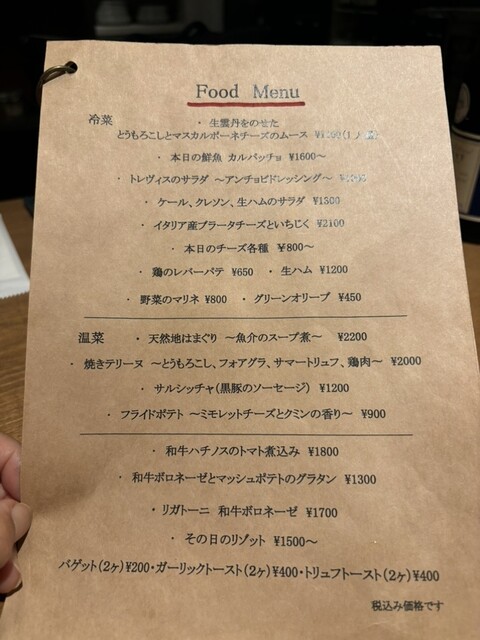 Food Menu
冷菜
・ 生雲丹をのせた
とうもろこしとマスカルポーネチーズのムース
・ 本日の鮮魚 カルパッチョ ¥1600～
・ トレヴィスのサラダ ～アンチョビドレッシング～
・ ケール、クレソン、生ハムのサラダ ¥1300
・ イタリア産ブラータチーズといちじく ¥2100
・ 本日のチーズ各種 ¥800～
・ 鶏のレバーパテ ¥650 ・ 生ハム ¥1200
・ 野菜のマリネ ¥800 ・ グリーンオリーブ ¥450
温菜 ・ 天然地はまぐり ～魚介のスープ煮～ ¥2200
・ 焼きテリーヌ ～とうもろこし、フォアグラ、サマートリュフ、鶏肉～ ¥2000
・ サルシッチャ(黒豚のソーセージ) ¥1200
・ フライドポテト ～ミモレットチーズとクミンの香り～ ¥900
・ 和牛ハチノスのトマト煮込み ¥1800
・ 和牛ボロネーゼとマッシュポテトのグラタン ¥1300
・ リガトーニ 和牛ボロネーゼ ¥1700
・ その日のリゾット ¥1500～
バゲット(2ヶ)¥200・ガーリックトースト(2ヶ)¥400・トリュフトースト(2ヶ)¥400
税込み価格です